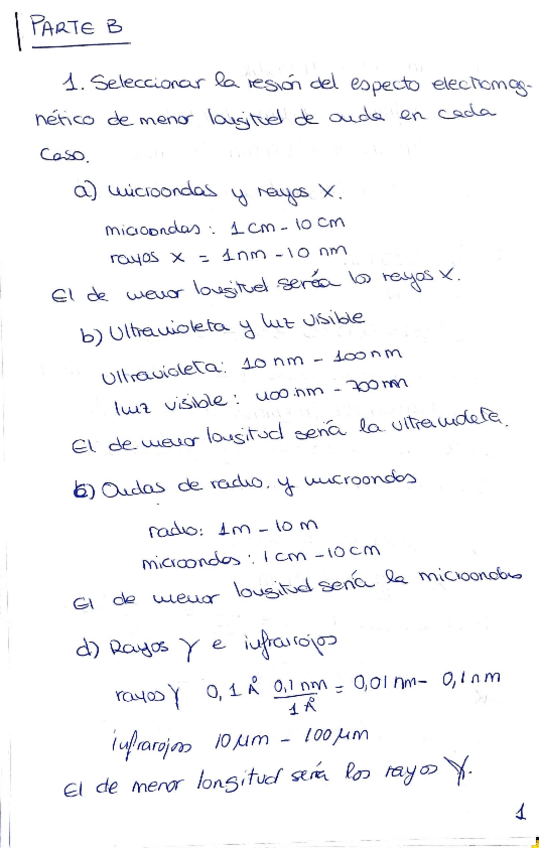 PARTE B
1. Seleccionar la región del espectro electromag-
nético de menor longitud de onda en cada
caso.
a) microondas y rayos X.
microondas: 1cm - 10cm
rayos x = 1nm - 10 nm
El de menor longitud sería los rayos X.
b) Ultravioleta y luz visible
Ultravioleta: 10 nm - 100nm
luz visible: 400 nm - 700nm
El de menor longitud sería la ultravioleta.
c) Ondas de radio. y microondas
radio: 1m - 10 m
microondas: 1 cm - 10 cm
El de menor longitud sería la microondas
d) Rayos γ e infrarrojos
rayos γ 0,1 Å 0,1 nm / 1 Å = 0,01 nm - 0,1 nm
infrarojos 10 μm - 100 μm
El de menor longitud sería los rayos γ.
1